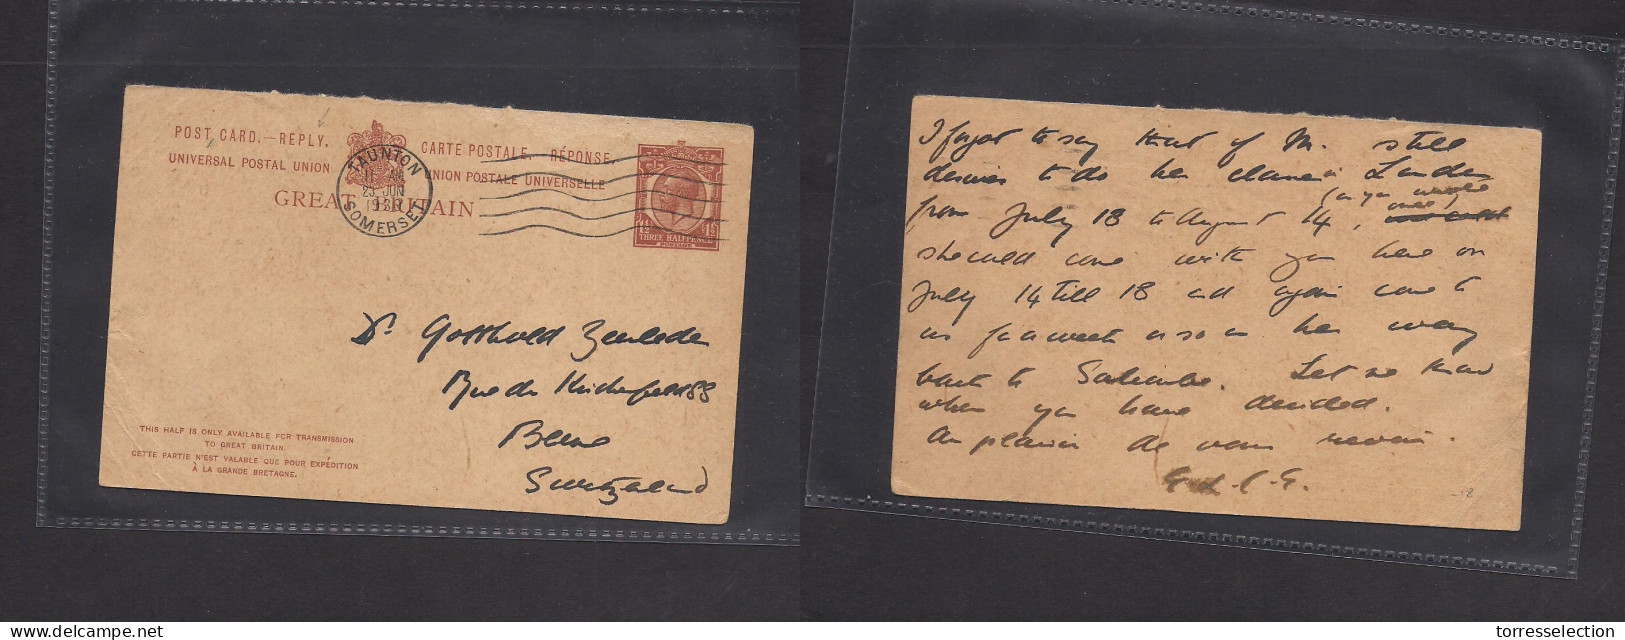 POST CARD.—REPLY.
UNIVERSAL POSTAL UNION
CARTE POSTALE.—RÉPONSE.
UNION POSTALE UNIVERSELLE
GREAT BRITAIN
TAUNTON
11 AM
23 JUN
SOMERSET
THREE HALFPENCE
Dr. Gotthold
Berne
Switzerland
THIS HALF IS ONLY AVAILABLE FOR TRANSMISSION
TO GREAT BRITAIN.
CETTE PARTIE N'EST VALABLE QUE POUR EXPÉDITION
À LA GRANDE BRETAGNE.
I forgot to say that if M. still
desires to do her in London
from July 18 to August 14,
she could come with you here on
July 14 till 18 and again come to
us for a week or so on her way
back to Salcombe. Let me know
when you have decided.
Au plaisir de vous revoir.
torresselection